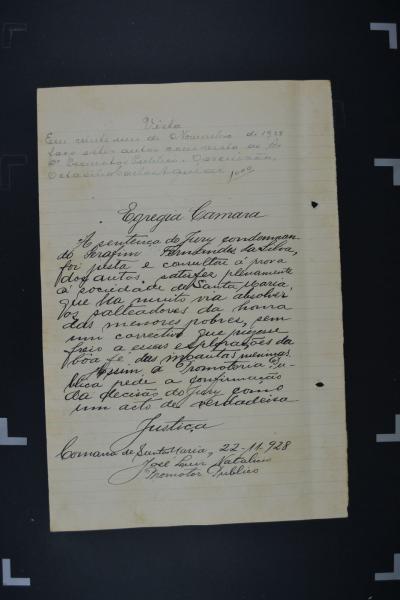 Vista
Em vinte um de Novembro de 1928
faço estes autos com vista ao
Dr Promotor Publico
Egregia Camara
A sentença do Jury condemnan-
do Serafim Fernandes da Silva,
foi justa e consultou á prova
dos autos, satisfez plenamente
a sociedade de Santa Maria,
que ha muito via absolver
os salteadores da honra
das menores pobres, sem
um correctivo que puzesse
freio a essas explorações da
bôa fé das incautas meninas.
Assim, a Promotoria Pu-
blica pede a confirmação
da decisão do Jury como
um acto de verdadeira
Justiça
Comarca de Santa Maria, 22-11-928
José Luiz Natalicio
Promotor Publico